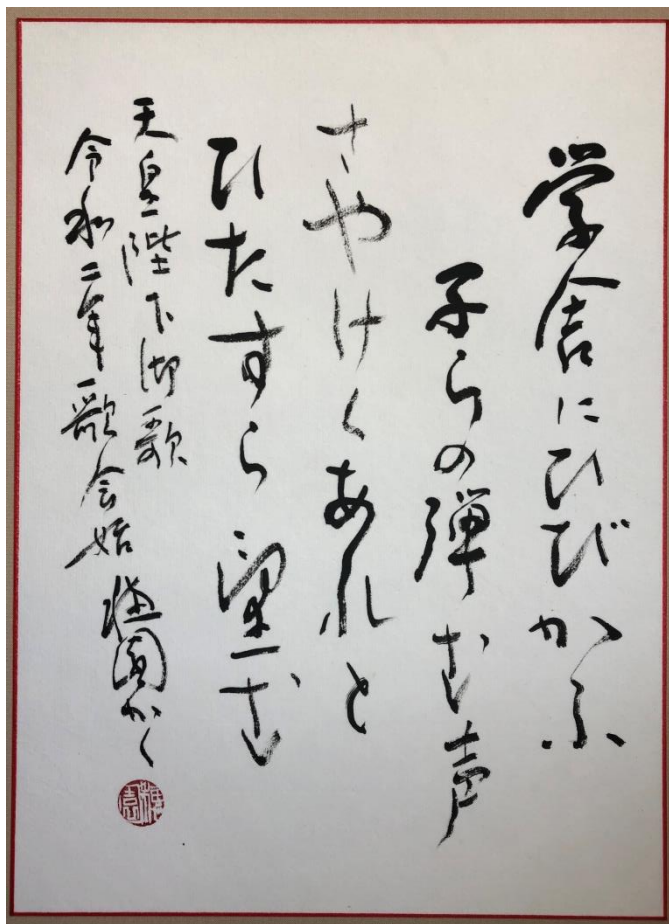 学舎にひびかふ
子らの弾む声
さやけくあれと
ひたすら望む
天皇陛下御歌
令和二年歌会始 園かく